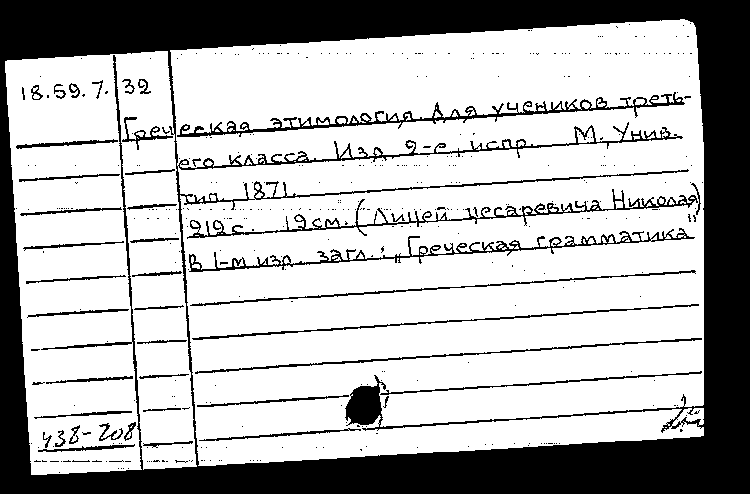 18.59.7. 32
Греческая этимология. Для учеников треть-
его класса. Изд. 2-е, испр. М., Унив.
тип., 1871.
212 с. 19 см. (Лицей цесаревича Николая)
В 1-м изд. загл.: „Греческая грамматика"
438-208